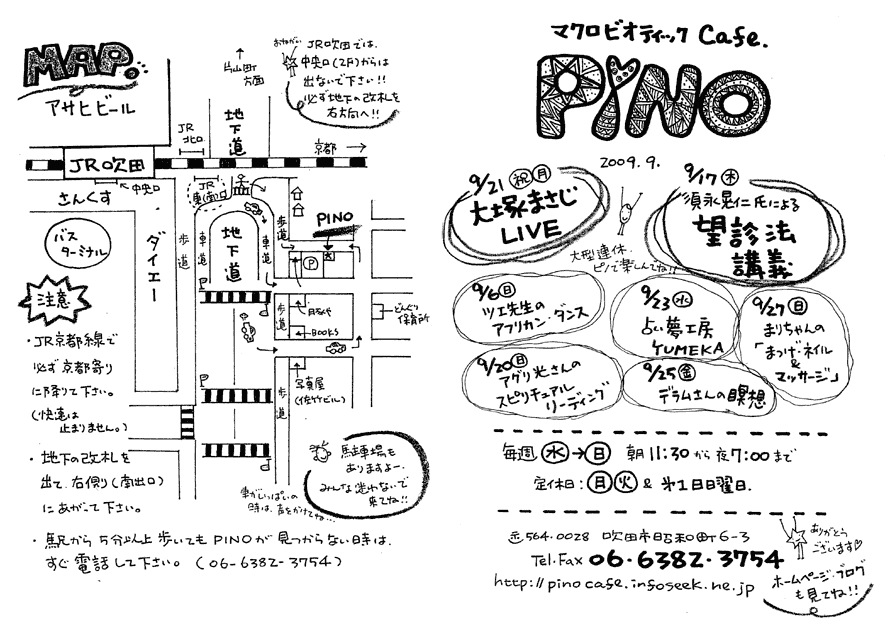 MAP.
アサヒビール
片山町
方面
おねがい
JR吹田では、
中央口(2F)からは
出ないで下さい!!
必ず地下の改札を
右方向へ!!
地下道
JR
北口
京都
JR吹田
中央口
さんくす
バス
ターミナル
ダイエー
歩道
車道
地下道
車道
歩道
PINO
P
歩道
BOOKS
どんぐり
保育所
歩道
写真屋
(佐竹ビル)
注意
・JR京都線で
必ず京都寄り
に降りて下さい。
(快速は
止まりません。)
・地下の改札を
出て、右側り(南出口)
にあがって下さい。
駐車場も
ありますよー。
みんな迷わないで
来てね!!
車がいっぱいの
時は、声をかけてね…
・駅から5分以上歩いてもPINOが見つからない時は、
すぐ電話して下さい。(06-6382-3754)
マクロビオティック Cafe.
PiNO
2009.9.
9/21 祝 月
大塚まさじ
LIVE
9/17 木
須永晃仁氏による
望診法
講義
大型連休、
ピノで楽しんでね!!
9/6 日
ツエ先生の
アフリカン・ダンス
9/23 水
占い夢工房
YUMEKA
9/27 日
まりちゃんの
「まつげ・ネイル
&
マッサージ」
9/20 日
アグリ光さんの
スピリチュアル
リーディング
9/25 金
デラムさんの瞑想
毎週 水→日 朝11:30から夜7:00まで
定休日:月火&第1日曜日.
〒564-0028 吹田市昭和町6-3
Tel・Fax 06・6382・3754
http://pinocafe.infoseek.ne.jp
ありがとう
ございます♡
ホームページ・ブログ
も見てね!!